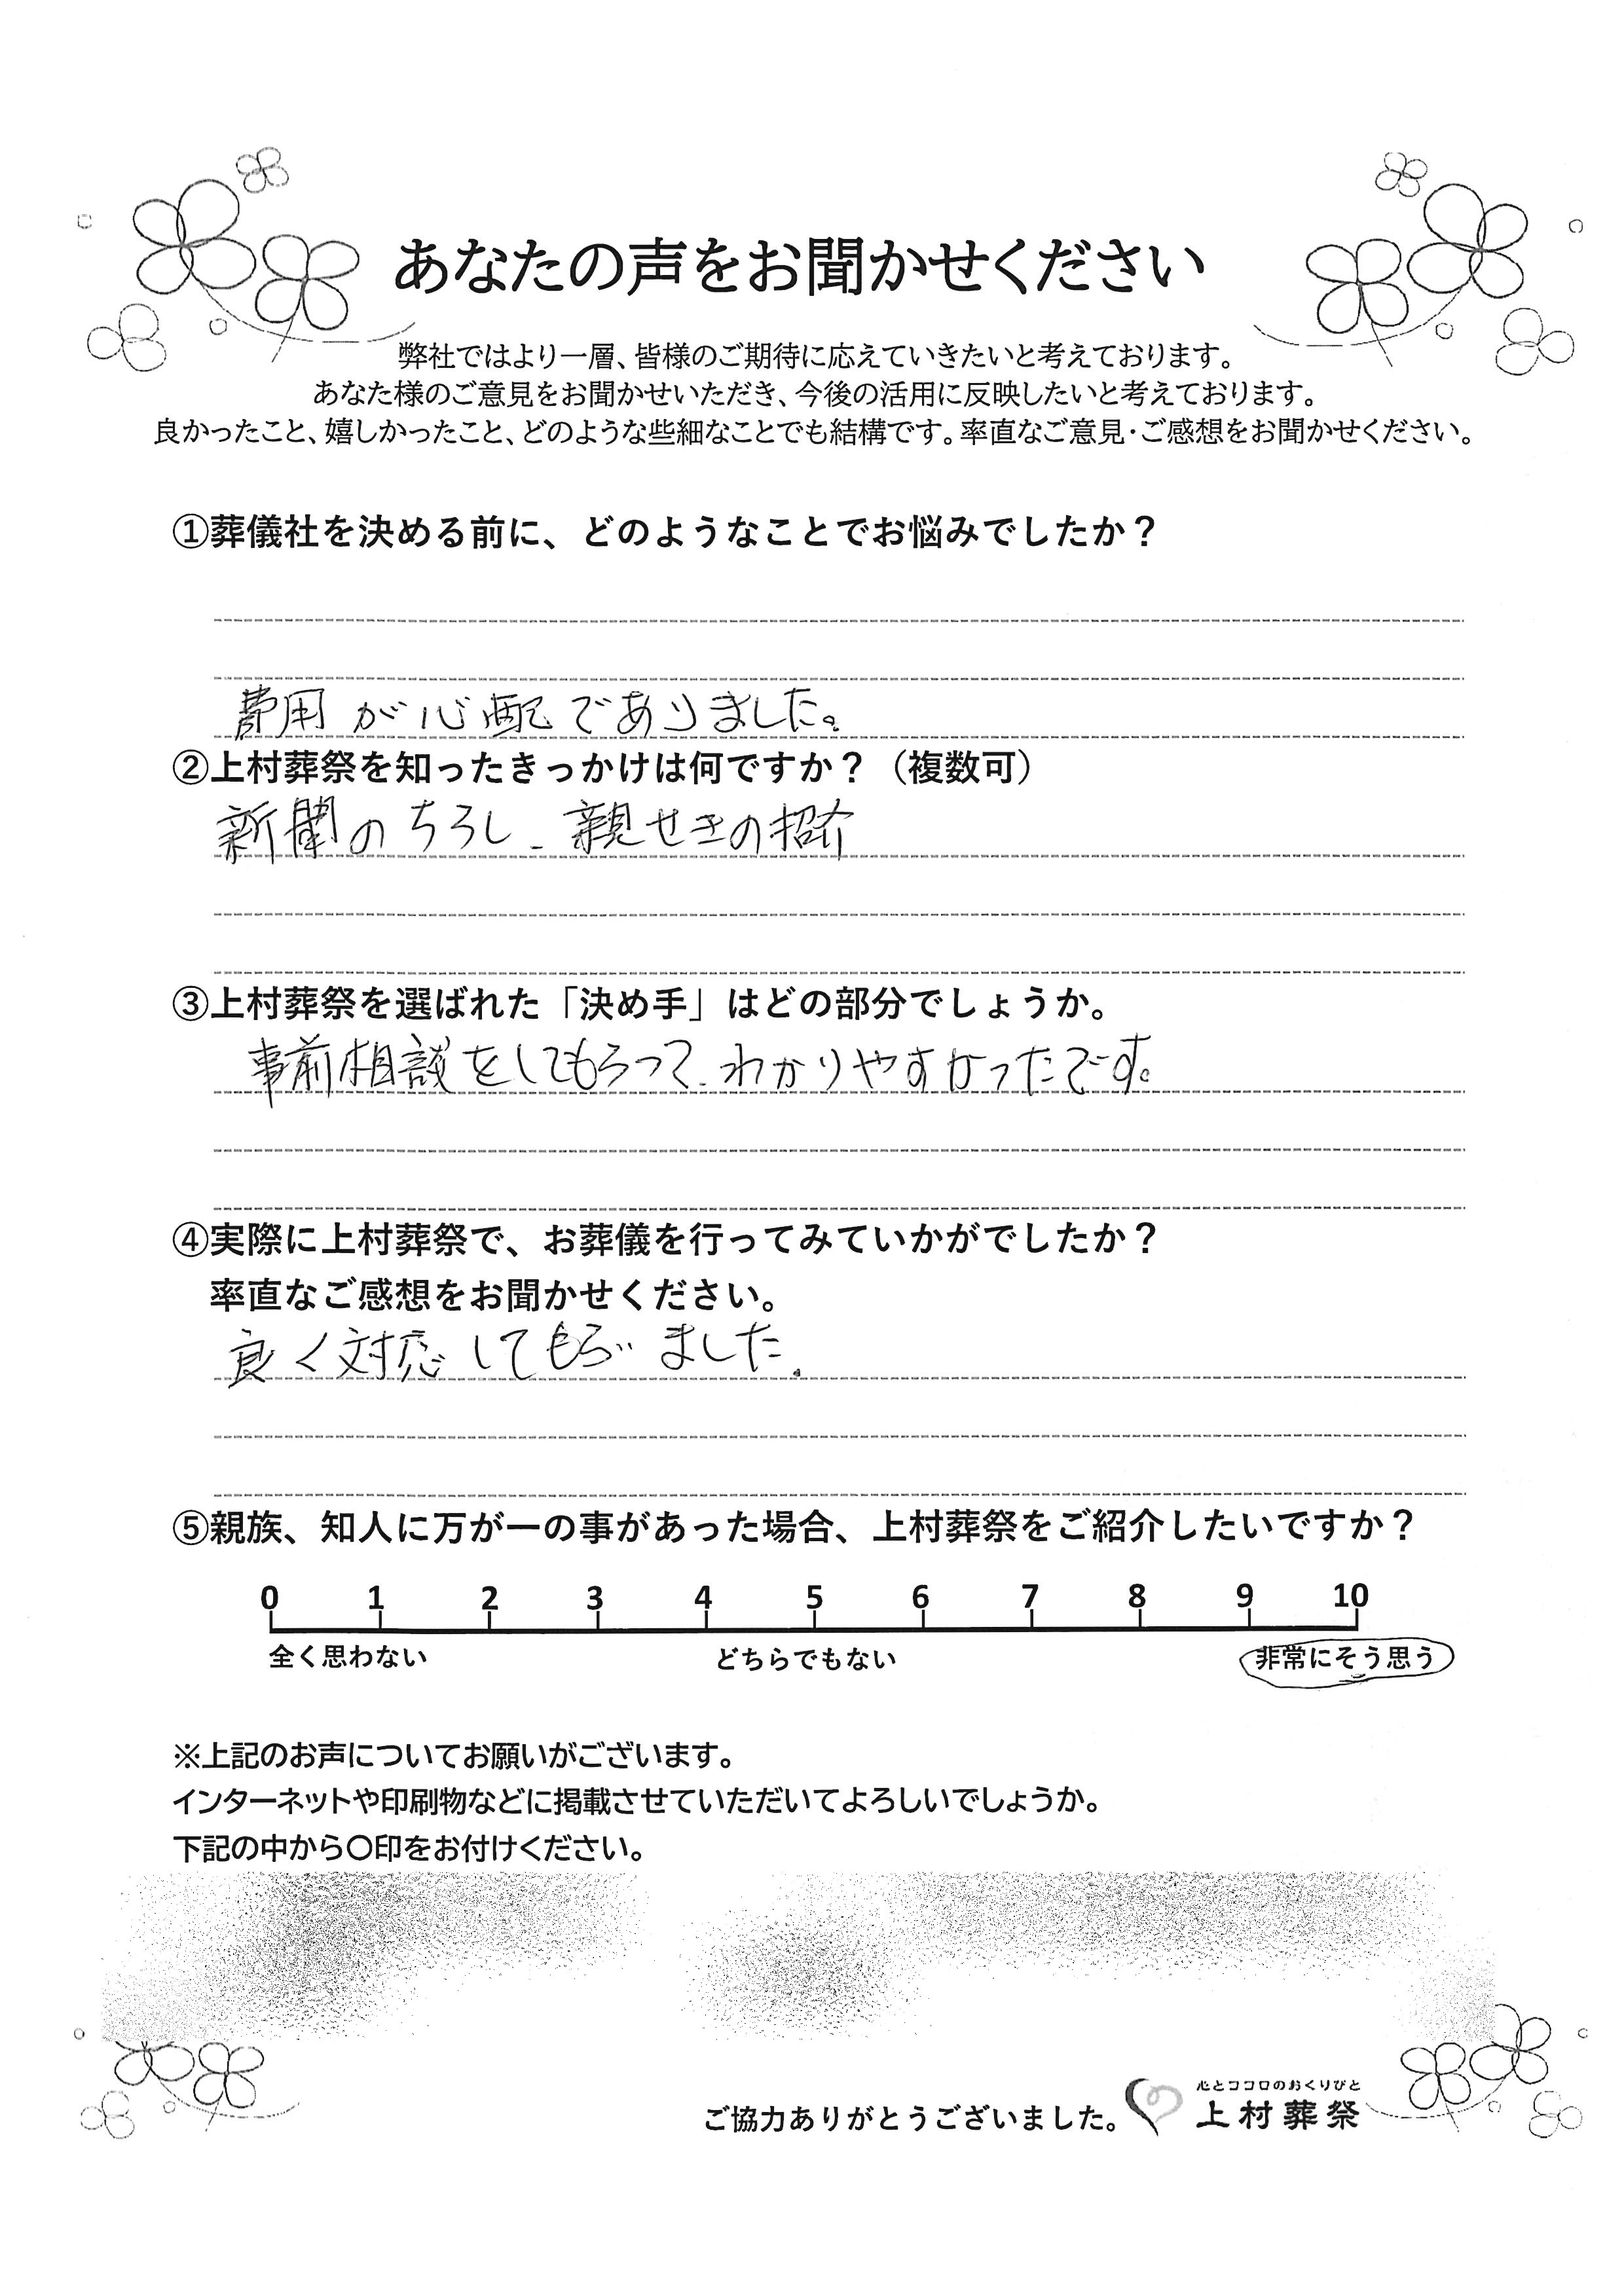 あなたの声をお聞かせください
弊社ではより一層、皆様のご期待に応えていきたいと考えております。
あなた様のご意見をお聞かせいただき、今後の活用に反映したいと考えております。
良かったこと、嬉しかったこと、どのような些細なことでも結構です。率直なご意見・ご感想をお聞かせください。
①葬儀社を決める前に、どのようなことでお悩みでしたか？
費用が心配でありました。
②上村葬祭を知ったきっかけは何ですか？（複数可）
新聞のちらし、親せきの紹介
③上村葬祭を選ばれた「決め手」はどの部分でしょうか。
事前相談をしてもらって、わかりやすかったです。
④実際に上村葬祭で、お葬儀を行ってみていかがでしたか？
率直なご感想をお聞かせください。
良く対応してもらいました。
⑤親族、知人に万が一の事があった場合、上村葬祭をご紹介したいですか？
0 1 2 3 4 5 6 7 8 9 10
全く思わない どちらでもない 非常にそう思う
※上記のお声についてお願いがございます。
インターネットや印刷物などに掲載させていただいてよろしいでしょうか。
下記の中から〇印をお付けください。
心とココロのおくりびと
ご協力ありがとうございました。 上村葬祭